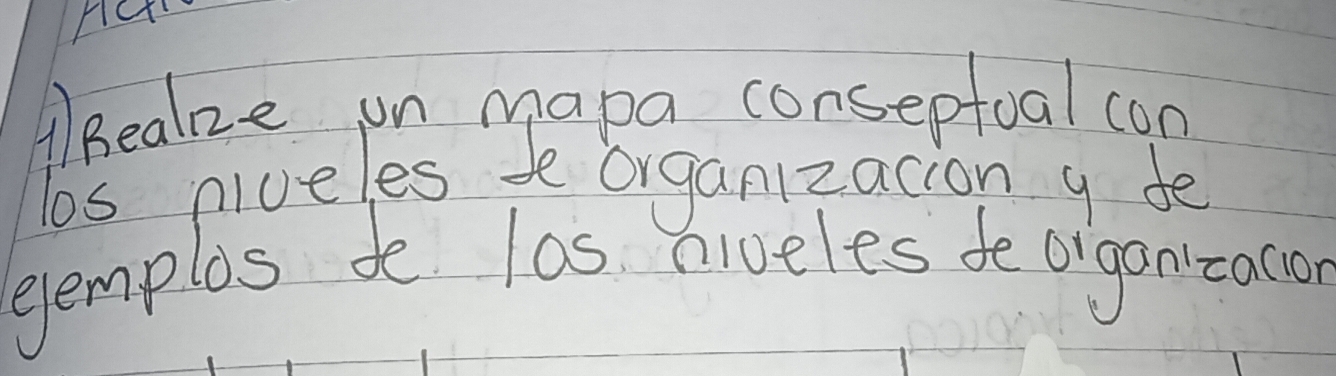 1) Realize un mapa conseptual con
los niveles de organizacion y de
ejemplos de los niveles de organizacion